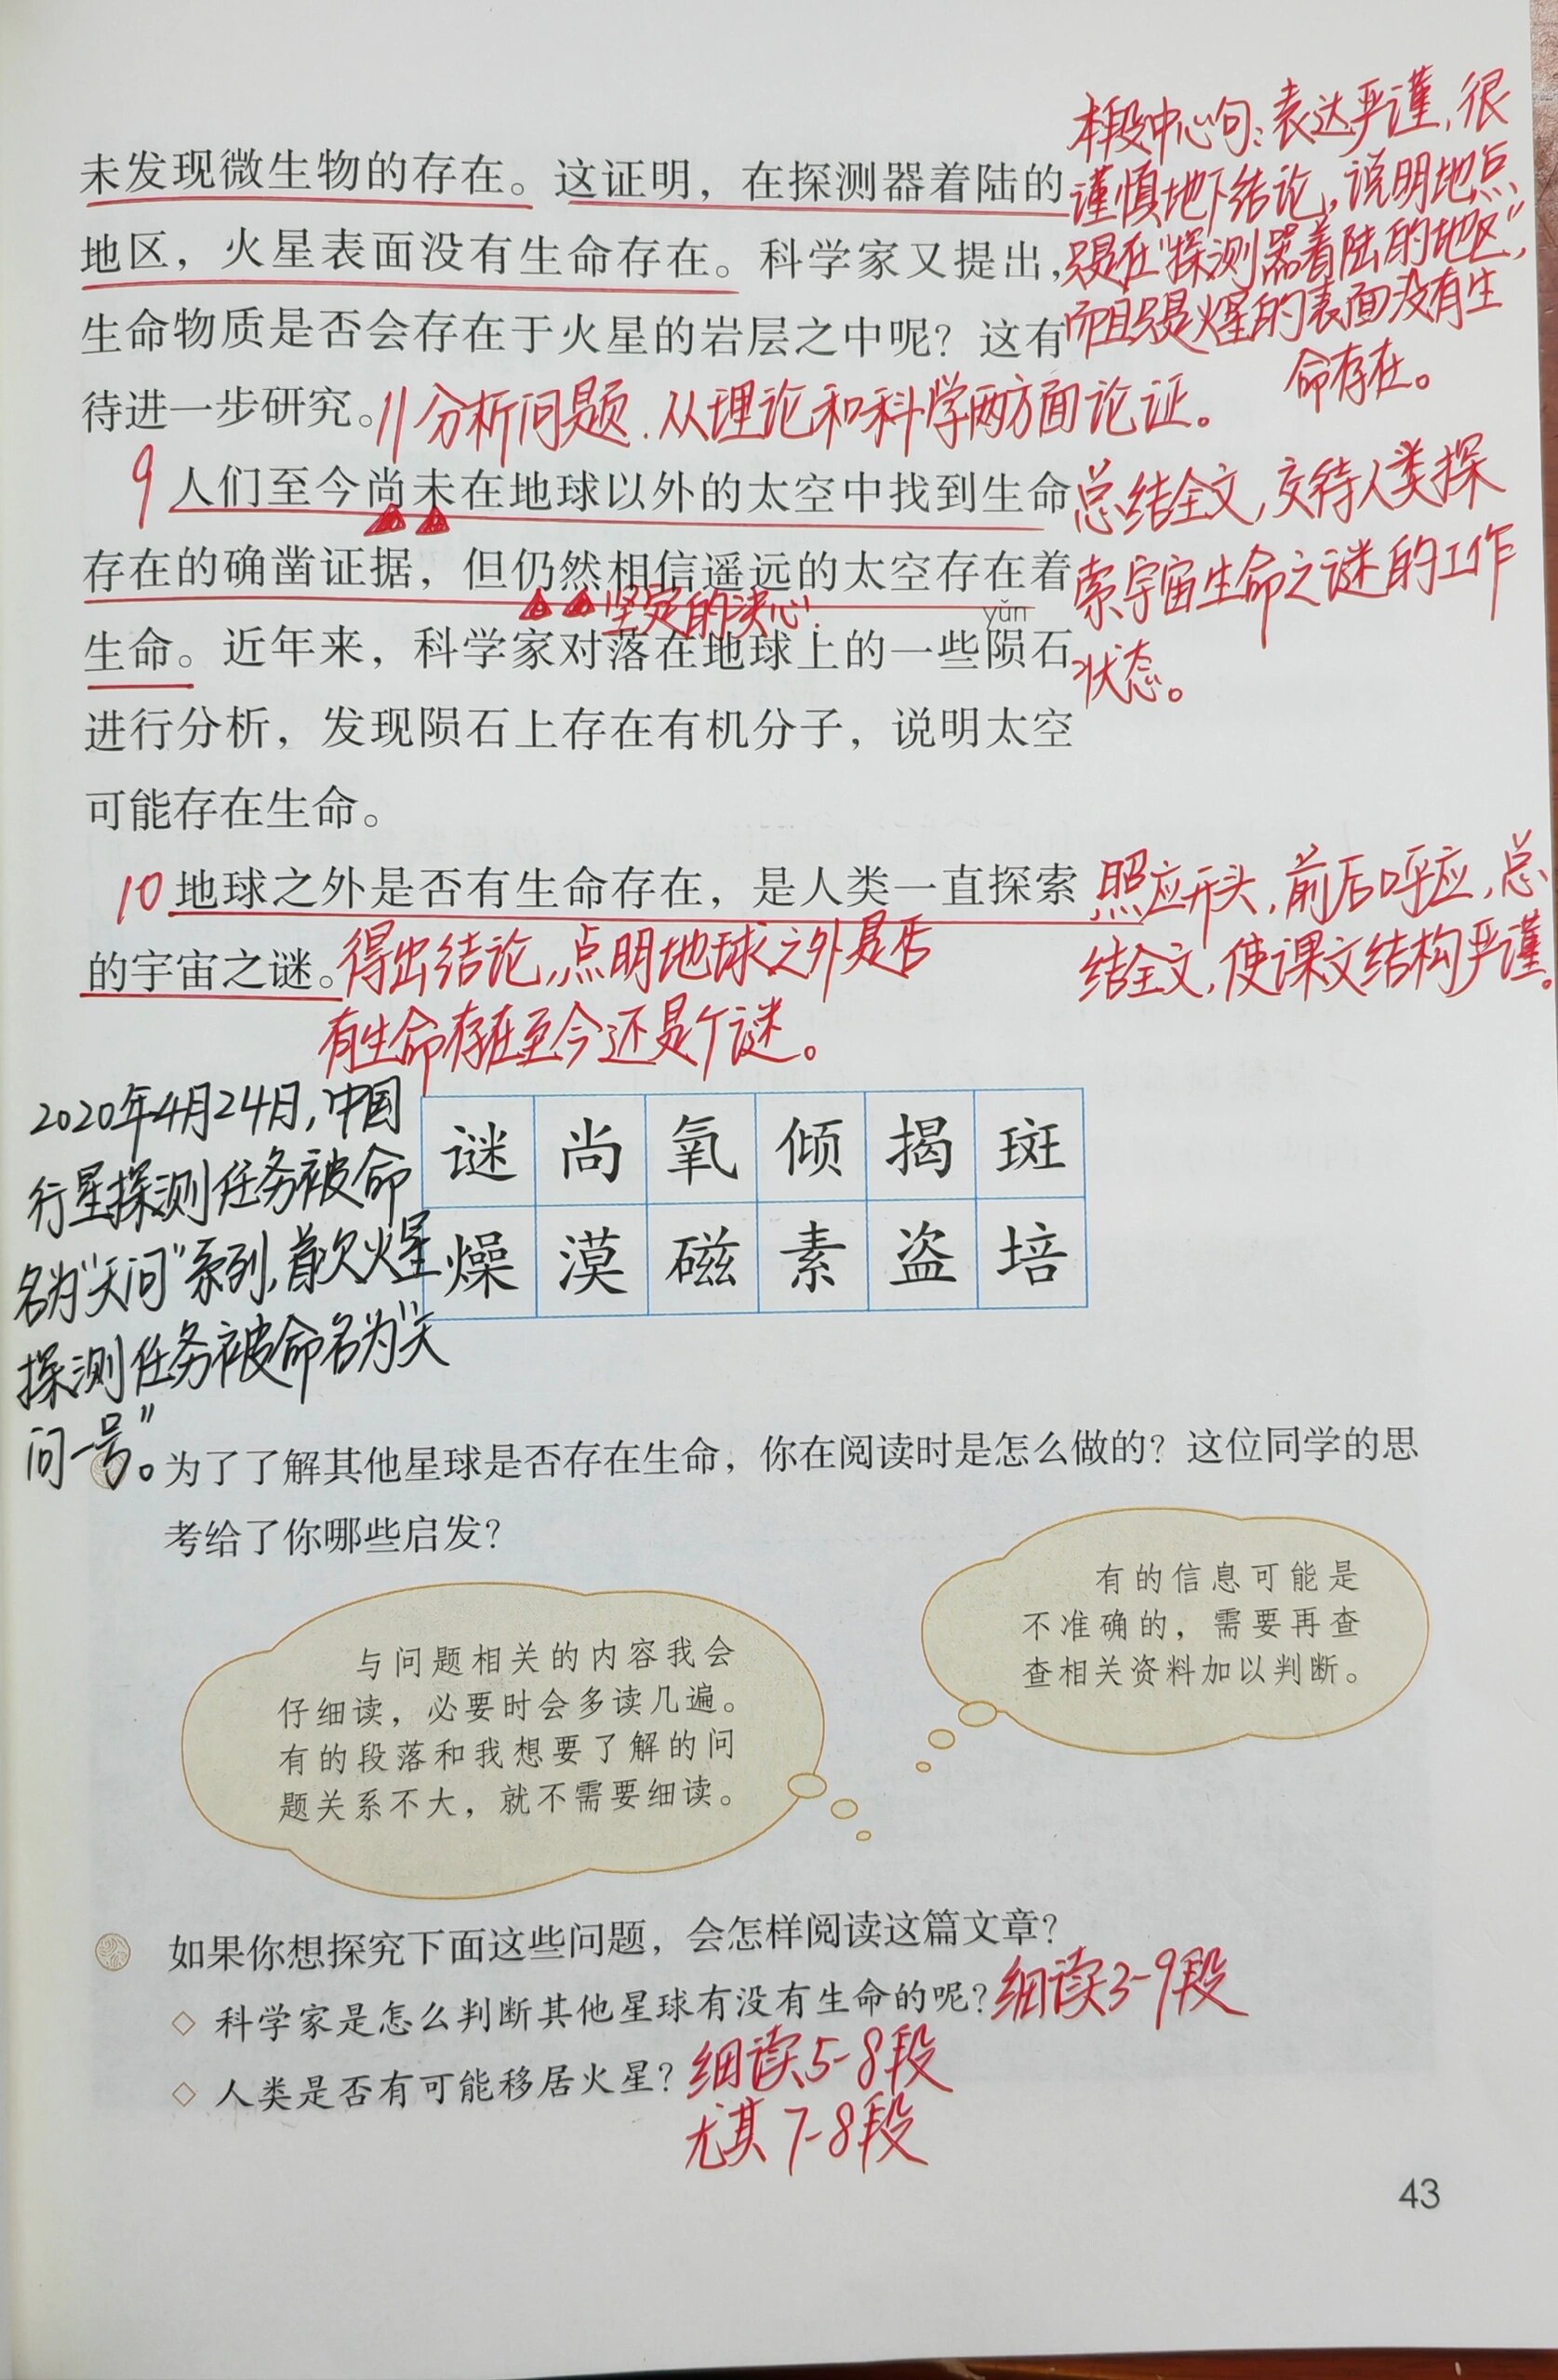 未发现微生物的存在。这证明，在探测器着陆的
地区，火星表面没有生命存在。科学家又提出，
生命物质是否会存在于火星的岩层之中呢？这有
待进一步研究。//分析问题.从理论和科学两方面论证。
本段中心句：表达严谨，很
谨慎地下结论，说明地点
只是在“探测器着陆的地区”，
而且只是火星的表面没有生
命存在。
9 人们至今尚未在地球以外的太空中找到生命
存在的确凿证据，但仍然相信遥远的太空存在着
坚定的决心.
yǔn
生命。近年来，科学家对落在地球上的一些陨石
进行分析，发现陨石上存在有机分子，说明太空
可能存在生命。
总结全文，交待人类探
索宇宙生命之谜的工作
状态。
10 地球之外是否有生命存在，是人类一直探索
的宇宙之谜。得出结论，点明地球之外是否
有生命存在至今还是个谜。
照应开头，前后呼应，总
结全文，使课文结构严谨。
2020年4月24日，中国
行星探测任务被命
名为“天问”系列，首次火星
探测任务被命名为“天
问一号”。
谜 尚 氧 倾 揭 斑
燥 漠 磁 素 盗 培
为了了解其他星球是否存在生命，你在阅读时是怎么做的？这位同学的思
考给了你哪些启发？
与问题相关的内容我会
仔细读，必要时会多读几遍。
有的段落和我想要了解的问
题关系不大，就不需要细读。
有的信息可能是
不准确的，需要再查
查相关资料加以判断。
如果你想探究下面这些问题，会怎样阅读这篇文章？
◇ 科学家是怎么判断其他星球有没有生命的呢？细读3-9段
◇ 人类是否有可能移居火星？细读5-8段
尤其7-8段
43